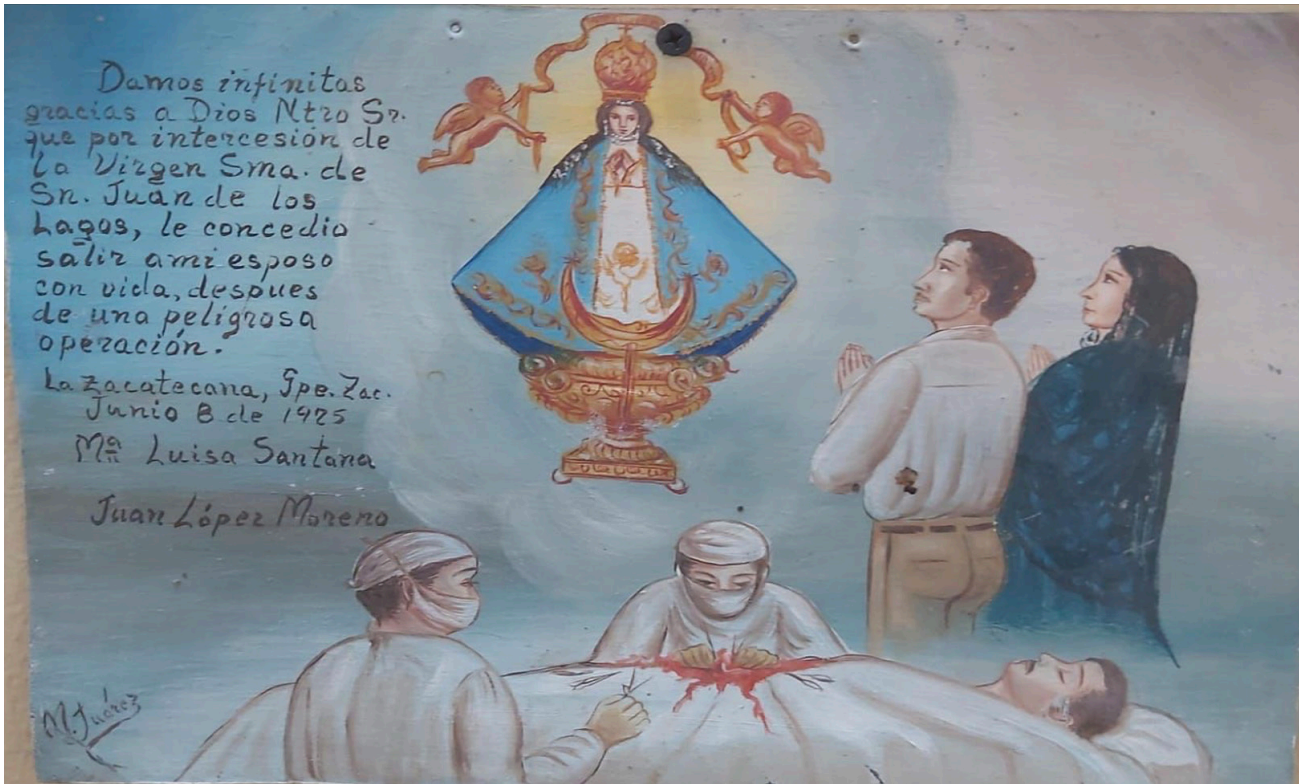 Damos infinitas
gracias a Dios Ntro Sr.
que por intercesión de
La Virgen Sma. de
Sn. Juan de los
Lagos, le concedio
salir ami esposo
con vida, despues
de una peligrosa
operación.
La Zacatecana, Gpe. Zac.
Junio 8 de 1975
Mª Luisa Santana
Juan López Moreno
M. Juárez